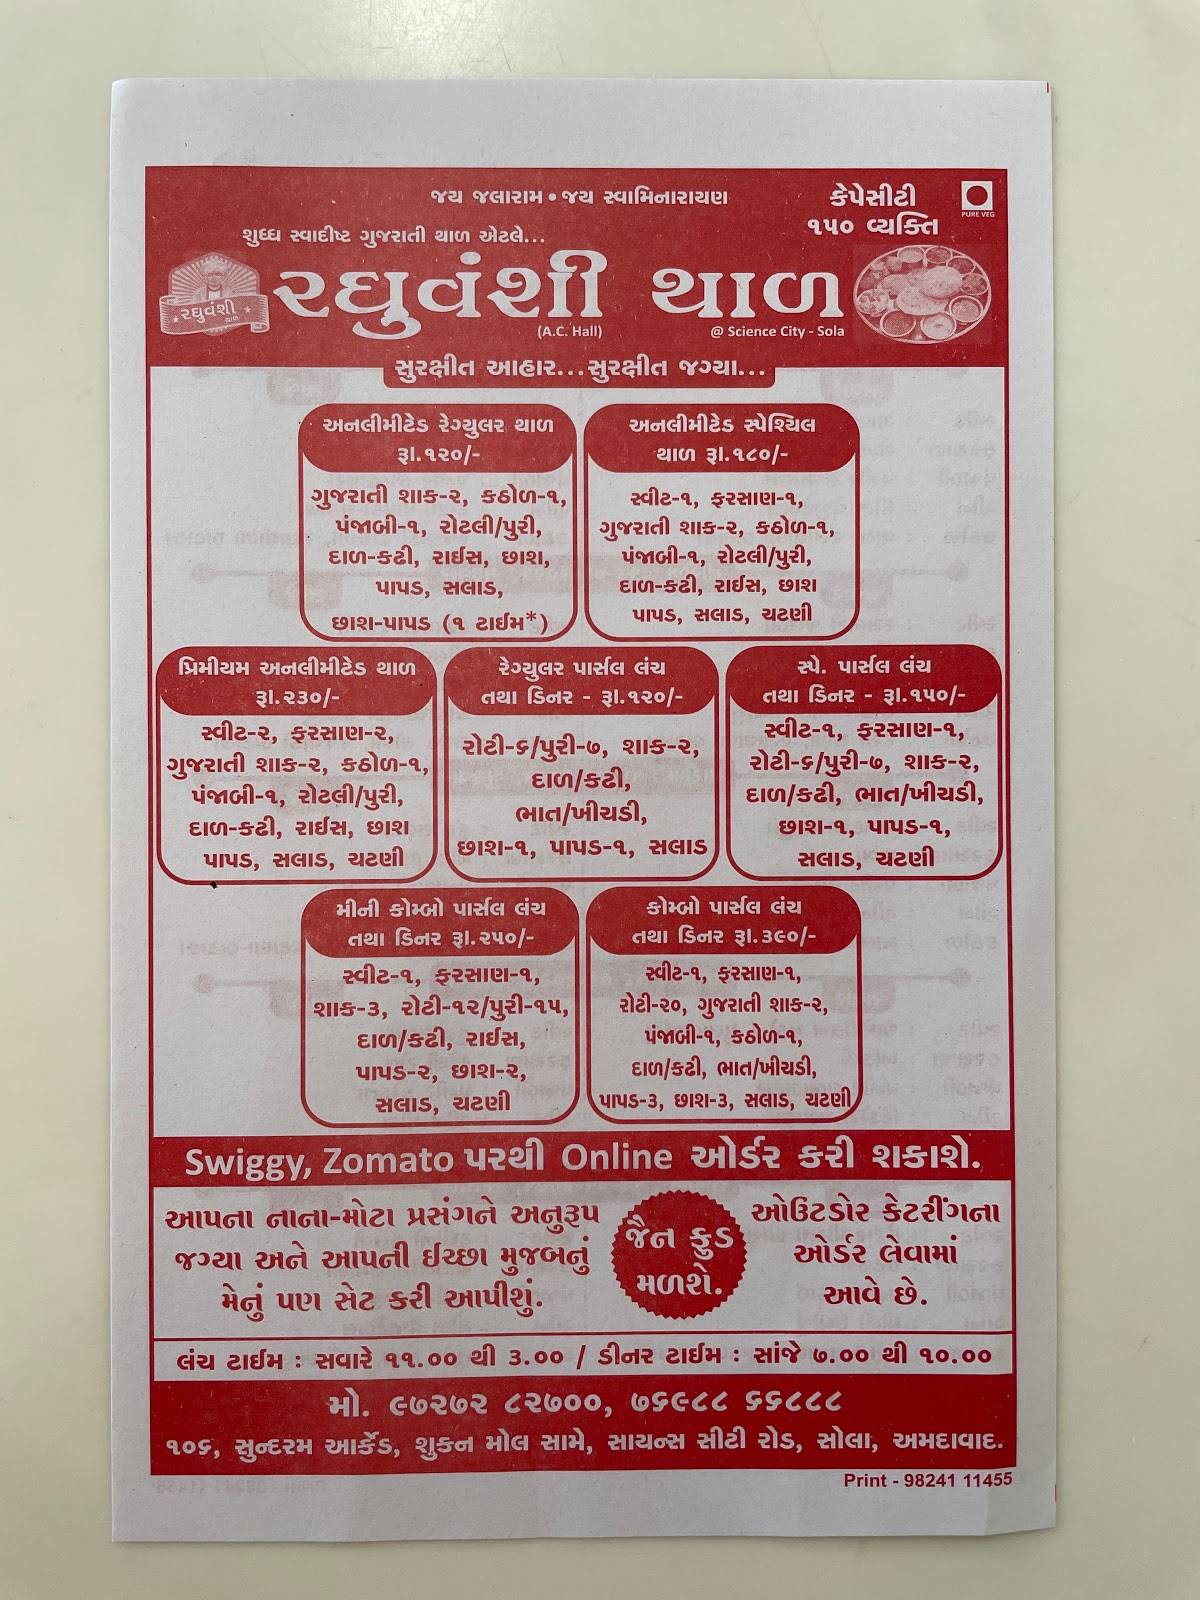 જય જલારામ • જય સ્વામિનારાયણ
કેપેસીટી
૧૫૦ વ્યક્તિ
PURE VEG
શુધ્ધ સ્વાદીષ્ટ ગુજરાતી થાળ એટલે...
રઘુવંશી થાળ
રઘુવંશી
થાળ
(A.C. Hall)
@ Science City - Sola
સુરક્ષીત આહાર...સુરક્ષીત જગ્યા...
અનલીમીટેડ રેગ્યુલર થાળ
રૂા.૧૨૦/-
ગુજરાતી શાક-૨, કઠોળ-૧,
પંજાબી-૧, રોટલી/પુરી,
દાળ-કઢી, રાઈસ, છાશ,
પાપડ, સલાડ,
છાશ-પાપડ (૧ ટાઈમ*)
અનલીમીટેડ સ્પેશ્યિલ
થાળ રૂા.૧૮૦/-
સ્વીટ-૧, ફરસાણ-૧,
ગુજરાતી શાક-૨, કઠોળ-૧,
પંજાબી-૧, રોટલી/પુરી,
દાળ-કઢી, રાઈસ, છાશ
પાપડ, સલાડ, ચટણી
પ્રિમીયમ અનલીમીટેડ થાળ
રૂા.૨૩૦/-
સ્વીટ-૨, ફરસાણ-૨,
ગુજરાતી શાક-૨, કઠોળ-૧,
પંજાબી-૧, રોટલી/પુરી,
દાળ-કઢી, રાઈસ, છાશ
પાપડ, સલાડ, ચટણી
રેગ્યુલર પાર્સલ લંચ
તથા ડિનર - રૂા.૧૨૦/-
રોટી-૬/પુરી-૭, શાક-૨,
દાળ/કઢી,
ભાત/ખીચડી,
છાશ-૧, પાપડ-૧, સલાડ
સ્પે. પાર્સલ લંચ
તથા ડિનર - રૂા.૧૫૦/-
સ્વીટ-૧, ફરસાણ-૧,
રોટી-૬/પુરી-૭, શાક-૨,
દાળ/કઢી, ભાત/ખીચડી,
છાશ-૧, પાપડ-૧,
સલાડ, ચટણી
મીની કોમ્બો પાર્સલ લંચ
તથા ડિનર રૂા.૨૫૦/-
સ્વીટ-૧, ફરસાણ-૧,
શાક-૩, રોટી-૧૨/પુરી-૧૫,
દાળ/કઢી, રાઈસ,
પાપડ-૨, છાશ-૨,
સલાડ, ચટણી
કોમ્બો પાર્સલ લંચ
તથા ડિનર રૂા.૩૯૦/-
સ્વીટ-૧, ફરસાણ-૧,
રોટી-૨૦, ગુજરાતી શાક-૨,
પંજાબી-૧, કઠોળ-૧,
દાળ/કઢી, ભાત/ખીચડી,
પાપડ-૩, છાશ-૩, સલાડ, ચટણી
Swiggy, Zomato પરથી Online ઓર્ડર કરી શકાશે.
આપના નાના-મોટા પ્રસંગને અનુરૂપ
જગ્યા અને આપની ઈચ્છા મુજબનું
મેનું પણ સેટ કરી આપીશું.
જૈન ફુડ
મળશે.
ઓઉટડોર કેટરીંગના
ઓર્ડર લેવામાં
આવે છે.
લંચ ટાઈમ : સવારે ૧૧.૦૦ થી ૩.૦૦ / ડીનર ટાઈમ : સાંજે ૭.૦૦ થી ૧૦.૦૦
મો. ૯૭૨૭૨ ૮૨૭૦૦, ૭૬૯૮૮ ૬૬૮૮૮
૧૦૬, સુન્દરમ આર્કેડ, શુકન મોલ સામે, સાયન્સ સીટી રોડ, સોલા, અમદાવાદ.
Print - 98241 11455